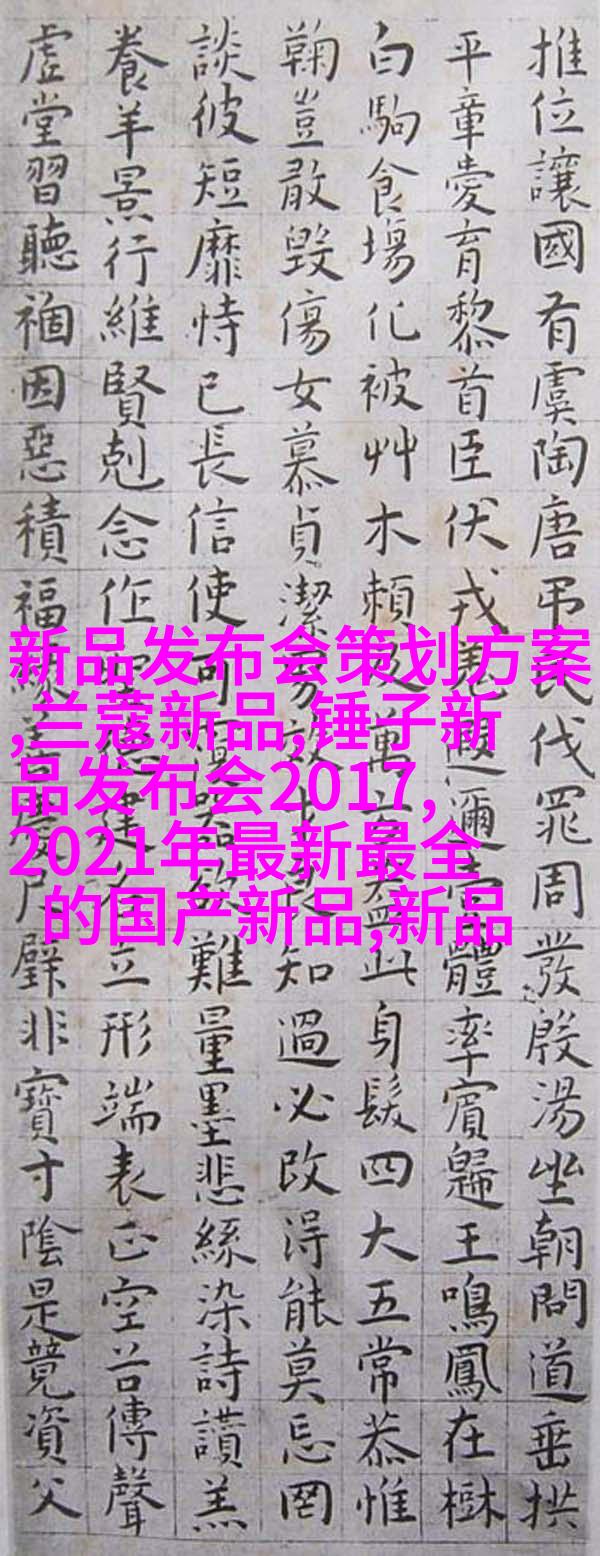 推位讓國有虞陶唐弔民伐罪周發殷湯坐朝問道垂拱
平章愛育黎首臣伏戎羌遐邇壹體率賓歸王鳴鳳在樹
白駒食場化被艸木賴及萬方蓋此身髮四大五常恭惟
鞠豈敢毀傷女慕貞潔男效才良知過必改得能莫忘罔
談彼短靡恃己長信使可覆器欲難量墨悲絲染詩讚羔
養羊景行維賢剋念作聖德建名立形端表正空谷傳聲
虛堂習聽禍因惡積福緣善慶尺璧非寶寸陰是競資父
新品发布会策划方案
,兰蔻新品,锤子新
品发布会2017,
2021年最新最全
的国产新品,新品